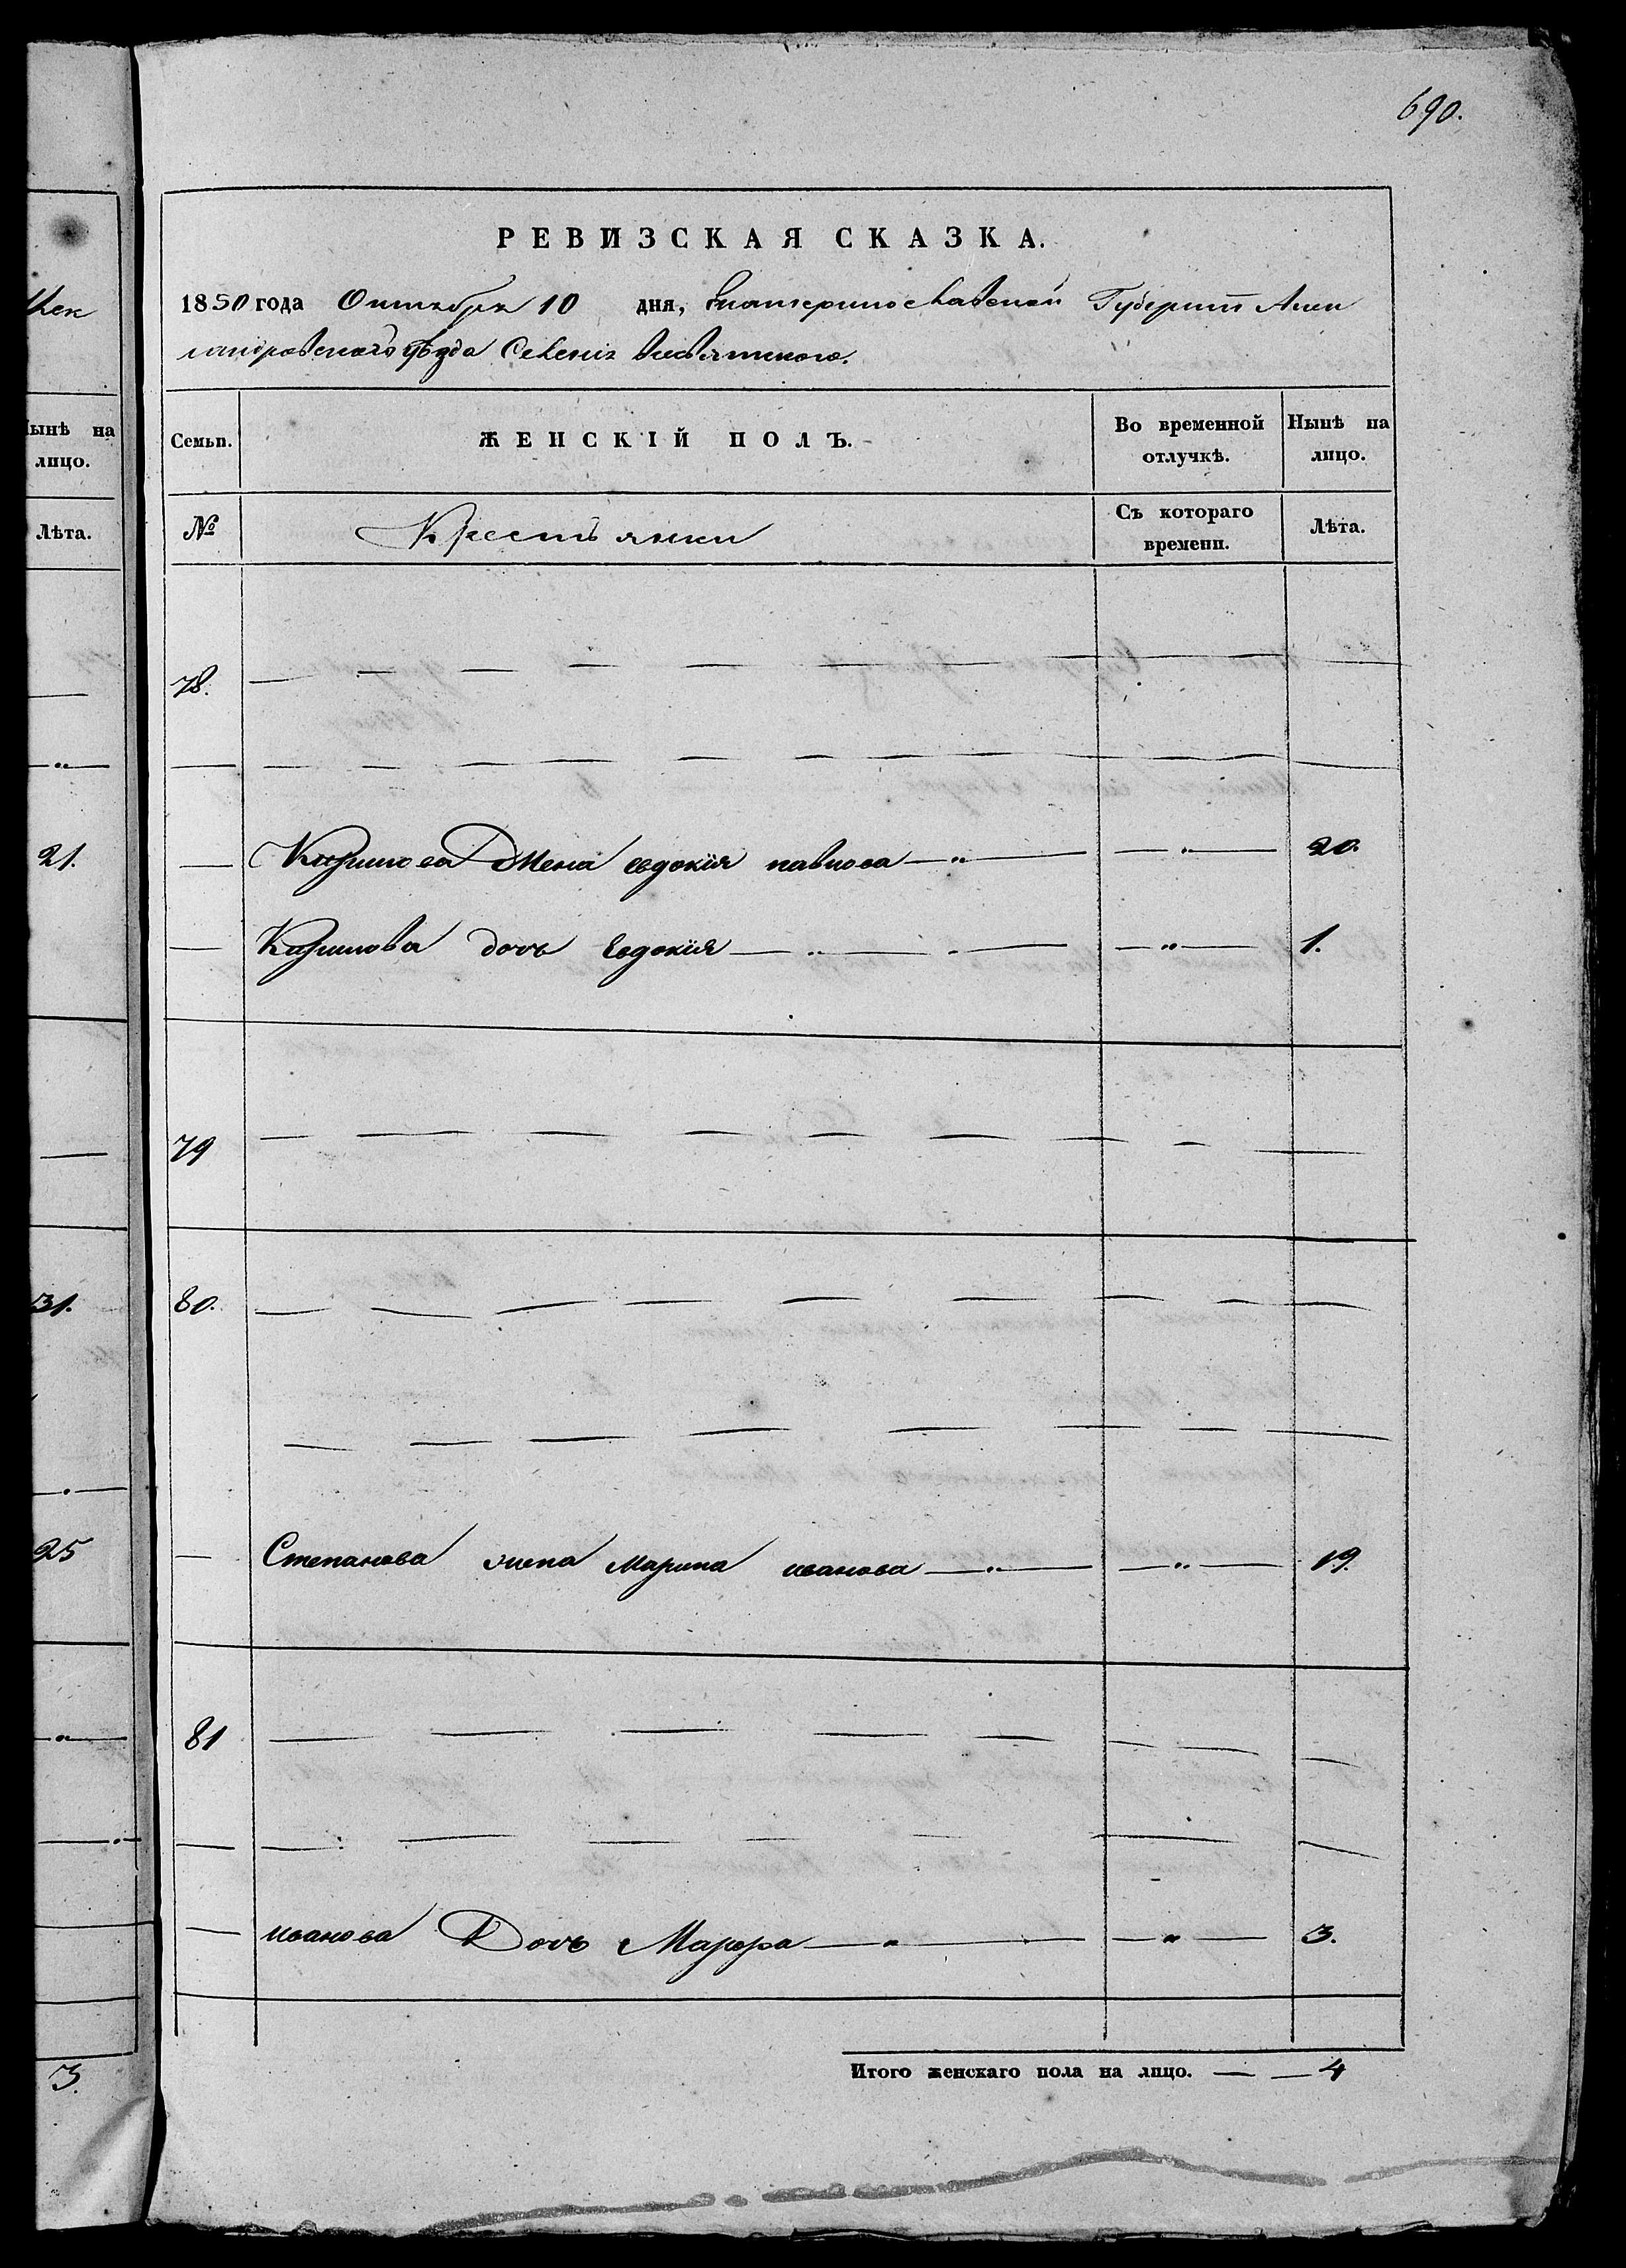 690.
РЕВИЗСКАЯ СКАЗКА.
1850 года Октября 10 дня, Екатеринославской Губернiи Алек
сандровскаго уѣзда Селенiя
Нынѣ на
лицо.
Лѣта.
21.
31.
25
3.
Семьи. ЖЕНСКIЙ ПОЛЪ. Во временной отлучкѣ. Нынѣ на лицо.
№ Крестьянки Съ котораго времени. Лѣта.
78.
жена евдокiя павлова — „ — — „ — 20.
дочь Евдокiя — „ — — „ — 1.
79
80.
Степанова жена Марина иванова — „ — — „ — 19.
81
иванова Дочь Марфа — „ — — „ — 3.
Итого женскаго пола на лицо. — — 4